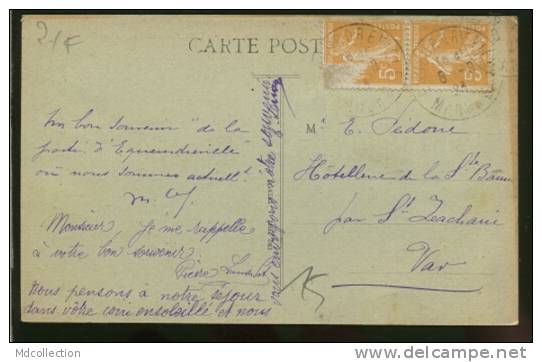 CARTE POST
Un bon souvenir "de la
porte d'Equeurdreville"
où nous sommes actuellt
Monsieur je me rappelle
à votre bon souvenir
Pierre
Nous pensons à notre séjour
dans votre coin ensoleillé et nous
vous envoyons notre souvenir
Mr E. Sédone
Hôtellerie de la Ste Baume
par St Zacharie
Var
Mdcollection
http://www.delcampe.net